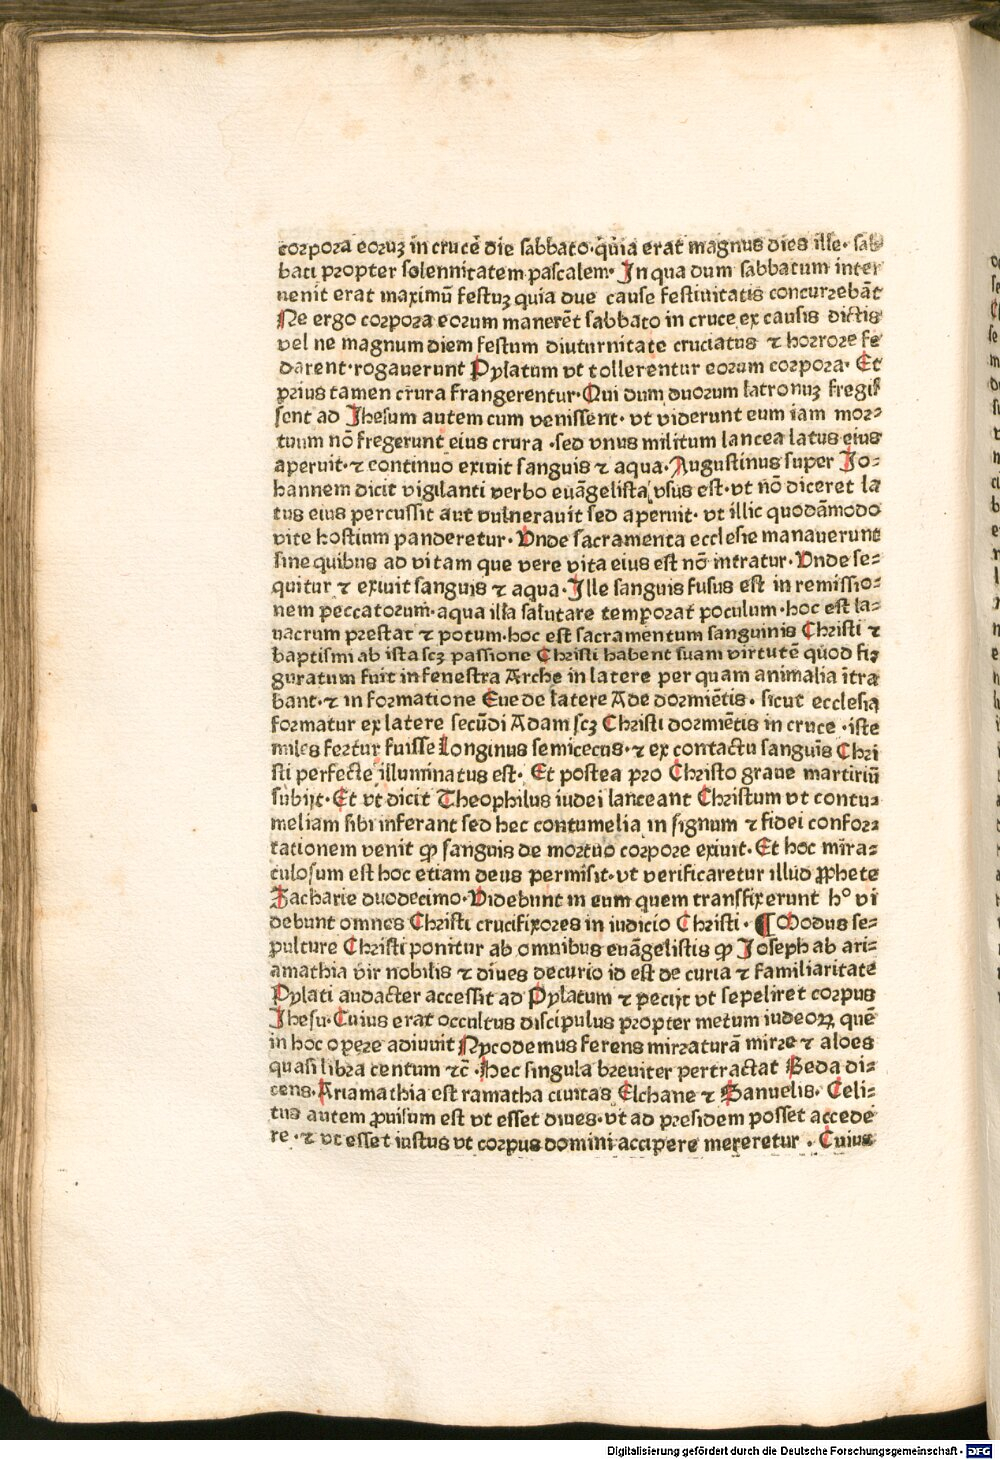 corpora eoruꝫ in crucē die sabbato·quia erat magnus dies ille·sab
bati propter solennitatem pascalem· In qua dum sabbatum inter
uenit erat maximū festuꝫ quia due cause festiuitatis concurrebāt
Ne ergo corpora eorum manerēt sabbato in cruce ex causis dictis
vel ne magnum diem festum diuturnitate cruciatus ⁊ horrore fe
darent·rogauerunt Pylatum vt tollerentur eorum corpora· Et
prius tamen crura frangerentur·Qui dum duorum latronuꝫ fregis
sent ad Jhesum autem cum venissent· vt viderunt eum iam mor⸗
tuum nō fregerunt eius crura ·sed vnus militum lancea latus eius
aperuit·⁊ continuo exiuit sanguis ⁊ aqua·Augustinus super Jo⸗
hannem dicit vigilanti verbo euāgelista vsus est·vt nō diceret la
tus eius percussit aut vulnerauit sed aperuit· vt illic quodāmodo
vite hostium panderetur·Vnde sacramenta ecclesie manauerunt
sine quibus ad vitam que vere vita eius est nō intratur·Vnde se⸗
quitur ⁊ exiuit sanguis ⁊ aqua·Ille sanguis fusus est in remissio⸗
nem peccatorum·aqua illa salutare temporat poculum·hoc est la⸗
uacrum prestat ⁊ potum·hoc est sacramentum sanguinis Christi ⁊
baptismi ab ista scꝫ passione Christi habent suam virtutē quod fi⸗
guratum fuit in fenestra Arche in latere per quam animalia ītra
bant·⁊ in formatione Eue de latere Ade dormiētis· sicut ecclesia
formatur ex latere secūdi Adam scꝫ Christi dormiētis in cruce ·iste
miles fertur fuisse Longinus semicecus·⁊ ex contactu sanguīs Chri
sti perfecte illuminatus est· Et postea pro Christo graue martiriū
subijt·Et vt dicit Theophilus iudei lanceant Christum vt contu⸗
meliam sibi inferant sed hec contumelia in signum ⁊ fidei confor⸗
tationem venit ꝙ sanguis de mortuo corpore exiuit·Et hoc mira⸗
culosum est hoc etiam deus permisit·vt verificaretur illud ꝓphete
Zacharie duodecimo·Videbunt in eum quem transfixerunt hº vi
debunt omnes Christi crucifixores in iudicio Christi· ¶ Modus se⸗
pulture Christi ponitur ab omnibus euāgelistis ꝙ Joseph ab ari⸗
amathia vir nobilis ⁊ diues decurio id est de curia ⁊ familiaritate
Pylati audacter accessit ad Pylatum ⁊ pecijt vt sepeliret corpus
Jhesu·Cuius erat occultus discipulus propter metum iudeoꝝ quē
in hoc opere adiuuit Nycodemus ferens mirraturā mirre ⁊ aloes
quasi libra centum ⁊c̄ ·Hec singula breuiter pertractat Beda di⸗
cens·Ariamathia est ramatha ciuitas Elchane ⁊ Samuelis· Celi⸗
tus autem ꝓuisum est vt esset diues·vt ad presidem posset accede
re ·⁊ vt esset iustus vt corpus domini accipere mereretur · Cuius
Digitalisierung gefördert durch die Deutsche Forschungsgemeinschaft - DFG